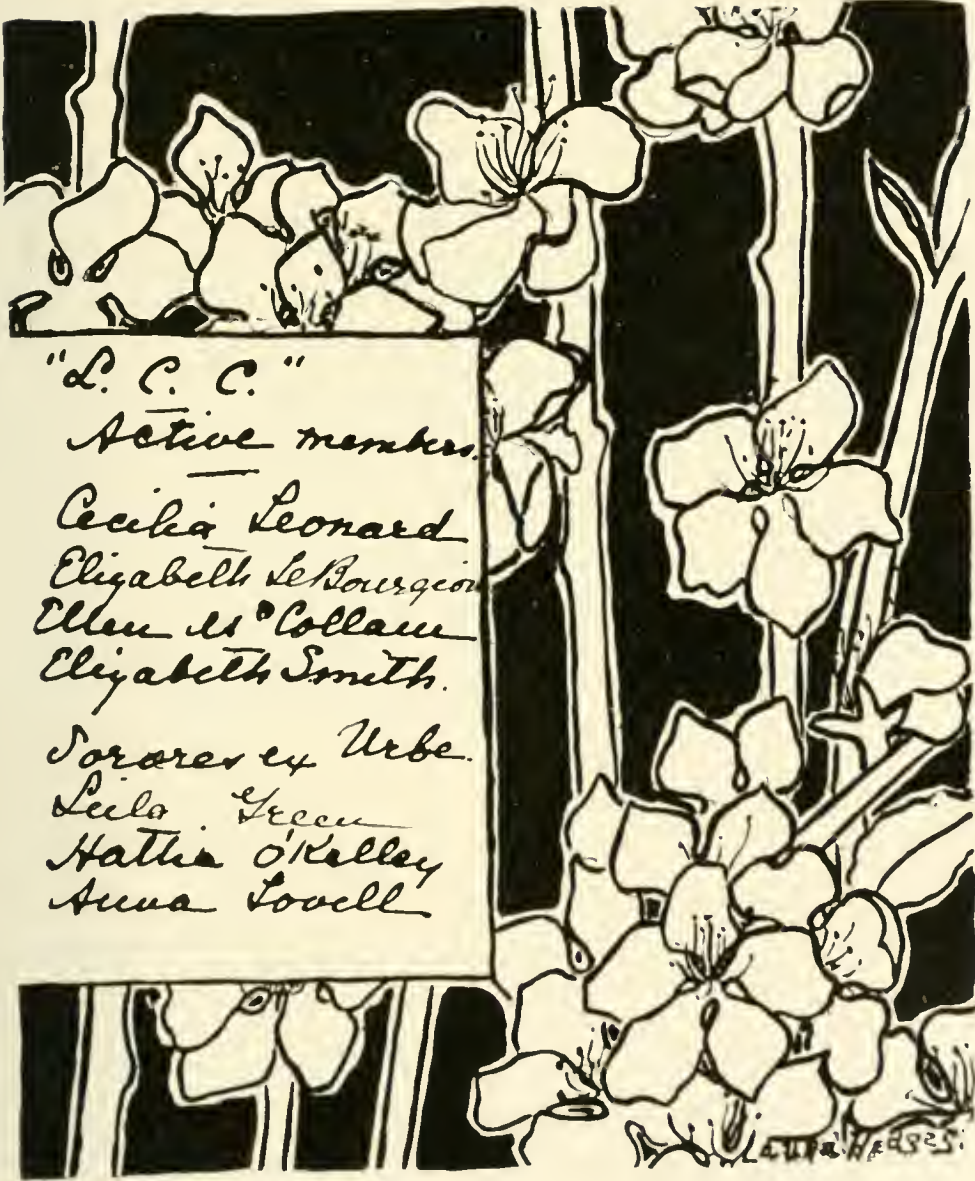 "L. C. C."
Active members.
Cecilia Leonard
Elizabeth LeBourgeoi
Ellen McCollam
Elizabeth Smith.
Sorores ex Urbe.
Leila Green
Hattie O'Kelley
Anna Lovell